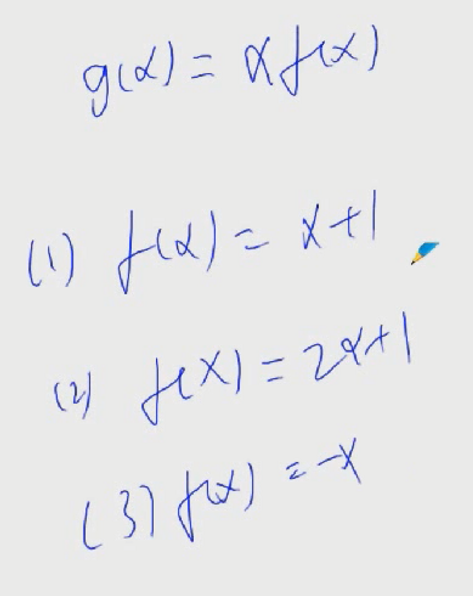 g(x) = x f(x)
(1) f(x) = x+1
(2) f(x) = 2x+1
(3) f(x) = -x